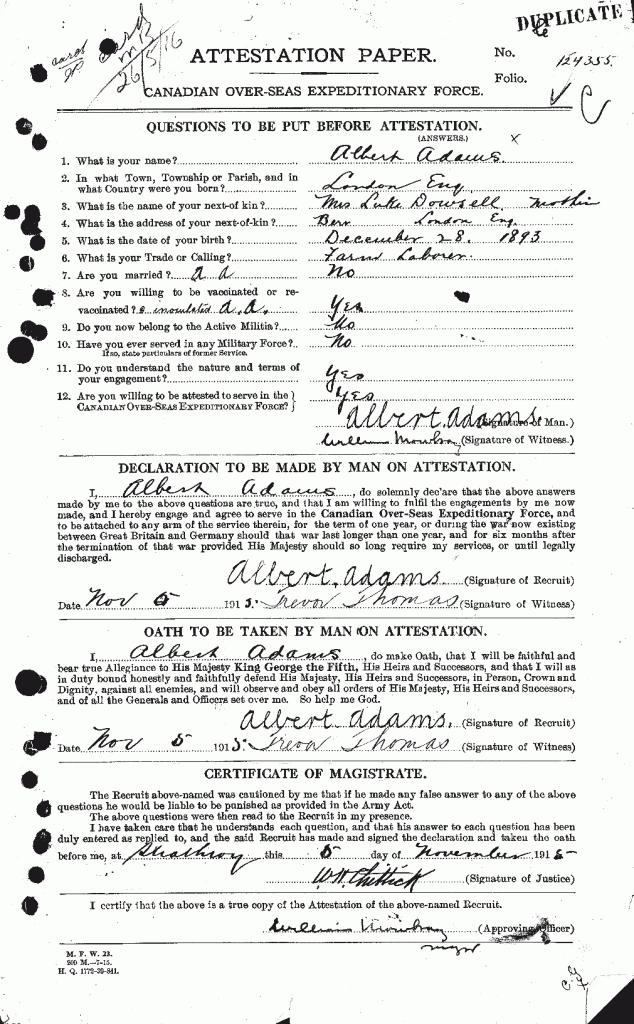 DUPLICATE
26/5/16
ATTESTATION PAPER.
No. 124355.
Folio.
CANADIAN OVER-SEAS EXPEDITIONARY FORCE.
QUESTIONS TO BE PUT BEFORE ATTESTATION.
(ANSWERS.) x
1. What is your name? Albert Adams.
2. In what Town, Township or Parish, and in
what Country were you born? London Eng
3. What is the name of your next-of kin? Mrs Luke Dowsell mother
4. What is the address of your next-of-kin? London Eng.
5. What is the date of your birth? December 28. 1893
6. What is your Trade or Calling? Farm Laborer.
7. Are you married? A A No
8. Are you willing to be vaccinated or re-
vaccinated? & inoculated A.A. Yes
9. Do you now belong to the Active Militia? No
10. Have you ever served in any Military Force? No
If so, state particulars of former Service.
11. Do you understand the nature and terms
of your engagement? Yes
12. Are you willing to be attested to serve in the
CANADIAN OVER-SEAS EXPEDITIONARY FORCE? Yes
Albert. Adams (Signature of Man.)
William Mowbray (Signature of Witness.)
DECLARATION TO BE MADE BY MAN ON ATTESTATION.
I, Albert Adams, do solemnly declare that the above answers
made by me to the above questions are true, and that I am willing to fulfil the engagements by me now
made, and I hereby engage and agree to serve in the Canadian Over-Seas Expeditionary Force, and
to be attached to any arm of the service therein, for the term of one year, or during the war now existing
between Great Britain and Germany should that war last longer than one year, and for six months after
the termination of that war provided His Majesty should so long require my services, or until legally
discharged.
Albert. Adams. (Signature of Recruit)
Date Nov 5 1915. Trevor Thomas (Signature of Witness)
OATH TO BE TAKEN BY MAN ON ATTESTATION.
I, Albert Adams, do make Oath, that I will be faithful and
bear true Allegiance to His Majesty King George the Fifth, His Heirs and Successors, and that I will as
in duty bound honestly and faithfully defend His Majesty, His Heirs and Successors, in Person, Crown and
Dignity, against all enemies, and will observe and obey all orders of His Majesty, His Heirs and Successors,
and of all the Generals and Officers set over me. So help me God.
Albert Adams. (Signature of Recruit)
Date Nov 5 1915. Trevor Thomas (Signature of Witness)
CERTIFICATE OF MAGISTRATE.
The Recruit above-named was cautioned by me that if he made any false answer to any of the above
questions he would be liable to be punished as provided in the Army Act.
The above questions were then read to the Recruit in my presence.
I have taken care that he understands each question, and that his answer to each question has been
duly entered as replied to, and the said Recruit has made and signed the declaration and taken the oath
before me, at Strathroy this 5 day of November 1915.
W.H. Chittick (Signature of Justice)
I certify that the above is a true copy of the Attestation of the above-named Recruit.
William Mowbray (Approving Officer)
Major
M. F. W. 23.
200 M.—7-15.
H. Q. 1772-39-841.